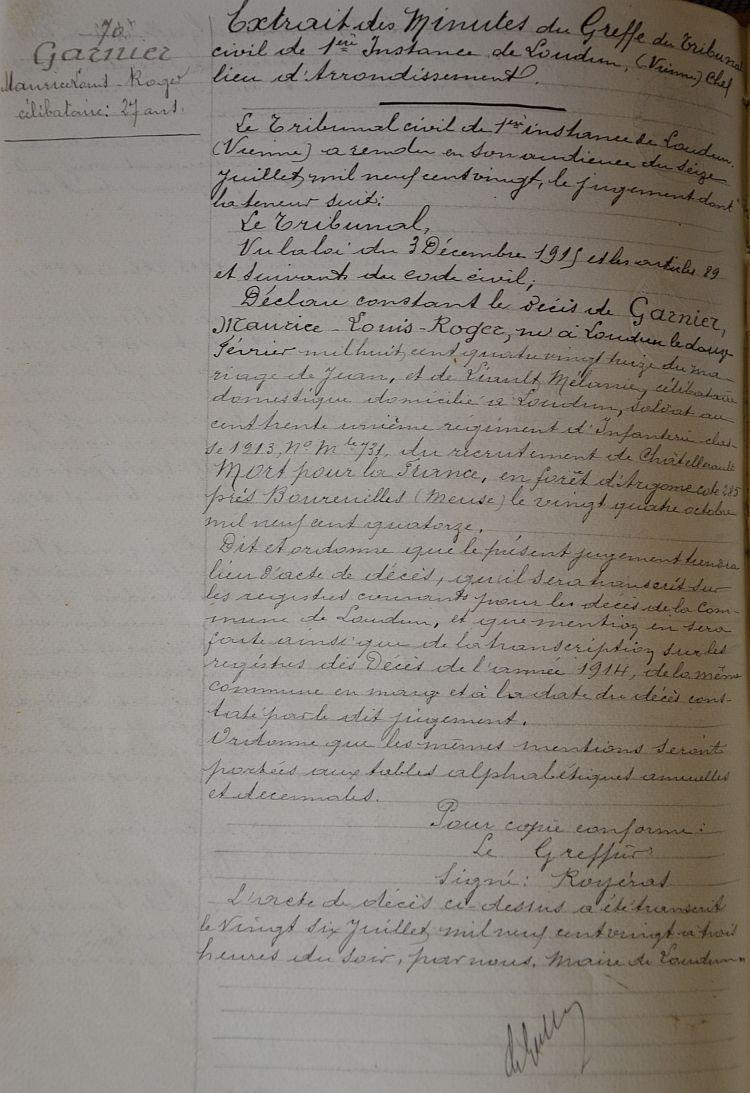 70
Garnier
Maurice Louis-Roger
célibataire: 27 ans.
Extrait des Minutes du Greffe du Tribunal
civil de 1ère Instance de Loudun, (Vienne) Chef
lieu d'Arrondissement.
Le Tribunal civil de 1ère instance de Loudun.
(Vienne) a rendu en son audience du seize
Juillet, mil neuf cent vingt, le jugement dont
la teneur suit:
Le Tribunal,
Vu la loi du 3 Décembre 1915 et les articles 89
et suivants du code civil;
Déclare constant le Décis de Garnier,
Maurice-Louis-Roger, né à Loudun le douze
Février mil huit cent quatre vingt treize du ma-
riage de Jean, et de Liault, Mélanie, célibataire
domestique domicilié à Loudun, soldat au
cent trente unième régiment d'Infanterie clas-
se 1913, No Mle 731, du recrutement de Châtellerault
Mort pour la France, en forêt d'Argonne cote 285
près Boureuilles (Meuse) le vingt quatre octobre
mil neuf cent quatorze.
Dit et ordonne que le présent jugement tiendra
lieu d'acte de décès, qu'il sera transcrit sur
les registres courants pour les décès de la Com-
mune de Loudun, et que mention en sera
faite ainsi que de la transcription sur les
registres des Décès de l'année 1914, de la même
commune en marge et à la date du décès cons-
taté par le dit jugement.
Ordonne que les mêmes mentions seront
portées aux tables alphabétiques annuelles
et décennales.
Pour copie conforme:
Le Greffier
Signé: Royéras
L'acte de décès ci dessus a été transcrit
le Vingt six Juillet mil neuf cent vingt à trois
heures du soir, par nous, Maire de Loudun